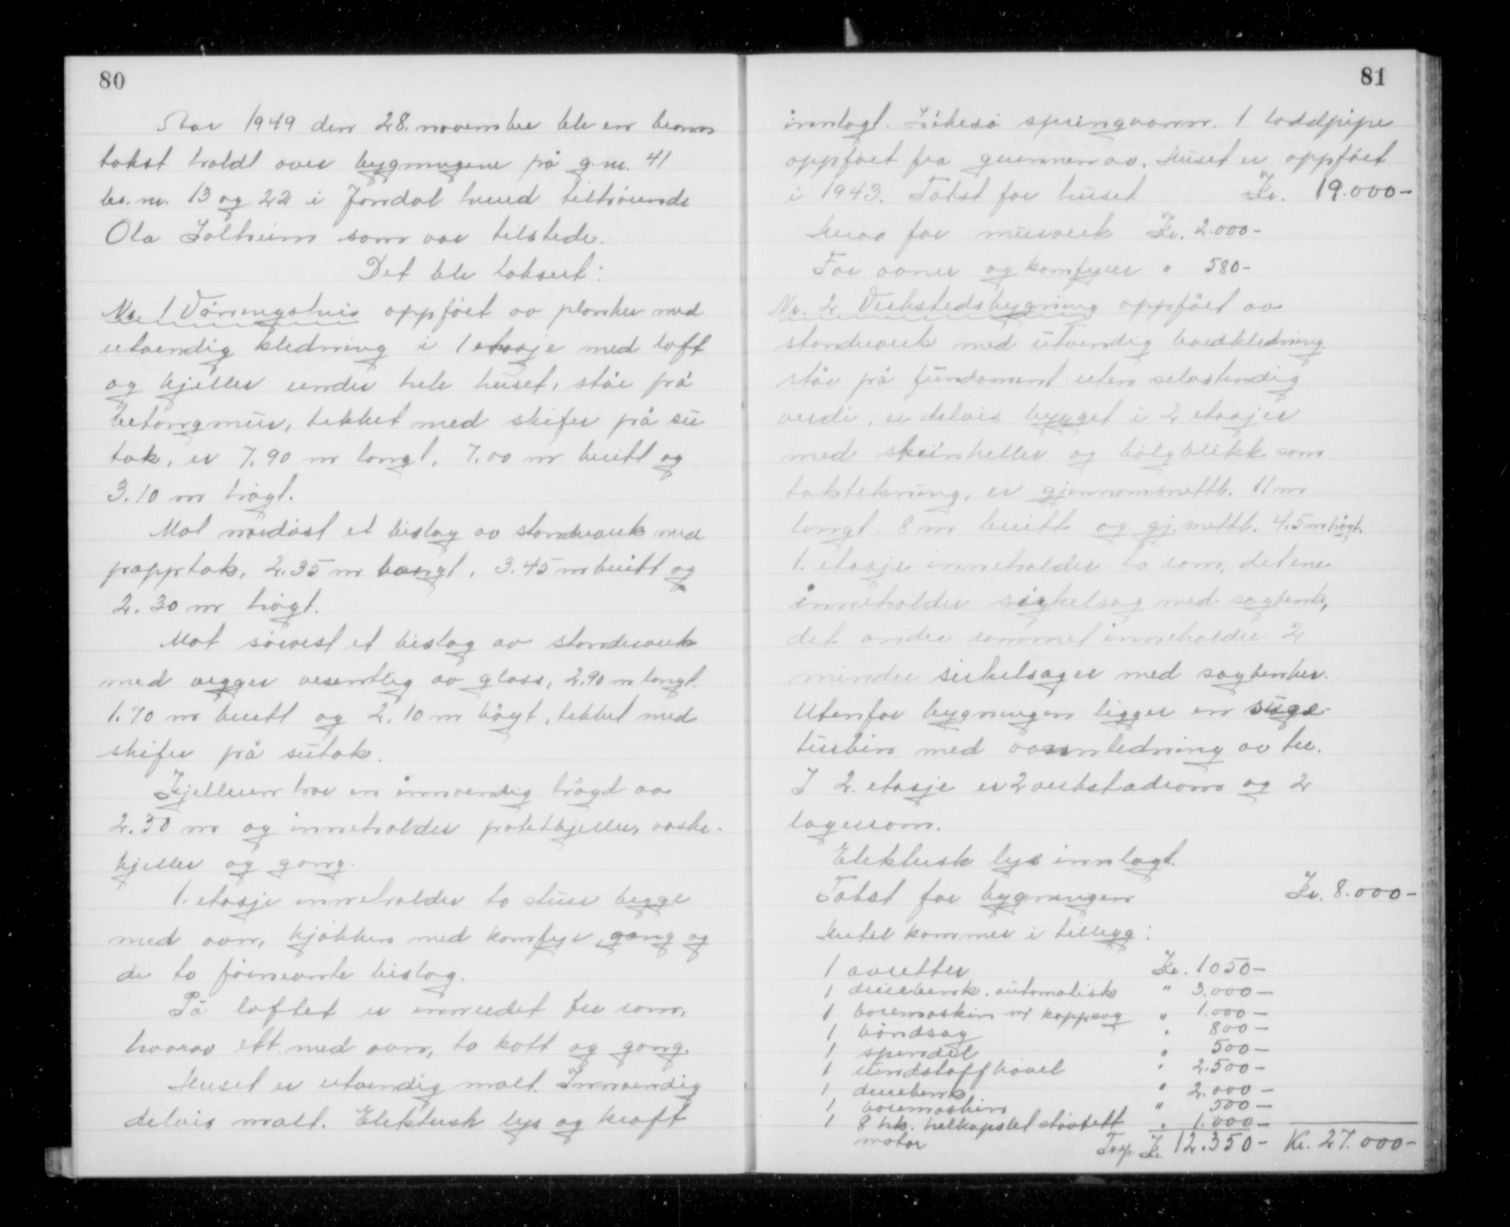 80
Aar 1949 den 28. november ble en brann
takst holdt over bygningene på g.nr. 41
br.nr. 13 og 22 i Jondal herred tilhørende
Ola Solheim som var tilstede.
Det ble taksert:
Nr. 1 Våningshus oppført av planker med
utvendig kledning i 1 etasje med loft
og kjeller under hele huset, står på
betongmur, tekket med skifer på su
tak, er 7.90 m langt, 7.00 m breitt og
3.10 m høgt.
Mot nordøst et bislag av standverk med
papptak, 2.35 m langt, 3.45 m breitt og
2.30 m høgt.
Mot sørvest et bislag av standverk
med vegger vesentlig av glass, 2.90 m langt.
1.70 m breitt og 2.10 m høgt, tekket med
skifer på sutak.
Kjelleren har en innvendig høgd av
2.30 m og inneholder potetkjeller, vaske-
kjeller og gang.
1. etasje inneholder to stuer begge
med ovn, kjøkken med komfyr, gang og
de to førnevnte bislag.
På loftet er innredet tre rom,
hvorav ett med ovn, to kott og gang.
Huset er utvendig malt. Innvendig
delvis malt. Elektrisk lys og kraft
81
innlagt. Likeså springvann. 1 loddpipe
oppført fra grunnen av. Huset er oppført
i 1943. Takst for huset Kr. 19.000-
Herav for murverk Kr. 2.000-
For ovner og komfyrer " 580-
Nr. 2 Verkstedsbygning oppført av
standverk med utvendig bordkledning
står på fundament uten selvstendig
verdi, er delvis bygget i 2 etasjer
med skinheller og bølgblikk som
taktekning, er gjennomsnittl. 11 m
langt. 8 m breitt og gj.snittl. 4.5 m høgt.
1. etasje inneholder to rom, det ene
inneholder sirkelsag med sagbenk,
det andre rommet inneholder 2
mindre sirkelsager med sagbenker.
Utenfor bygningen ligger en suge-
turbin med vannledning av tre.
I 2. etasje er 2 verkstadrom og 2
lagerrom.
Elektrisk lys innlagt.
Takst for bygningen Kr. 8.000-
Hertil kommer i tillegg:
1 avretter Kr. 1050-
1 dreiebenk, automatisk " 3.000-
1 boremaskin m/ kappsag " 1.000-
1 båndsag " 800-
1 spindel " 500-
1 rundstaffhøvel " 2.500-
1 dreiebenk " 2.000-
1 boremaskin " 500-
1 8 hk. helkapslet støvtett " 1.000-
motor Trsp. Kr. 12.350- Kr. 27.000-